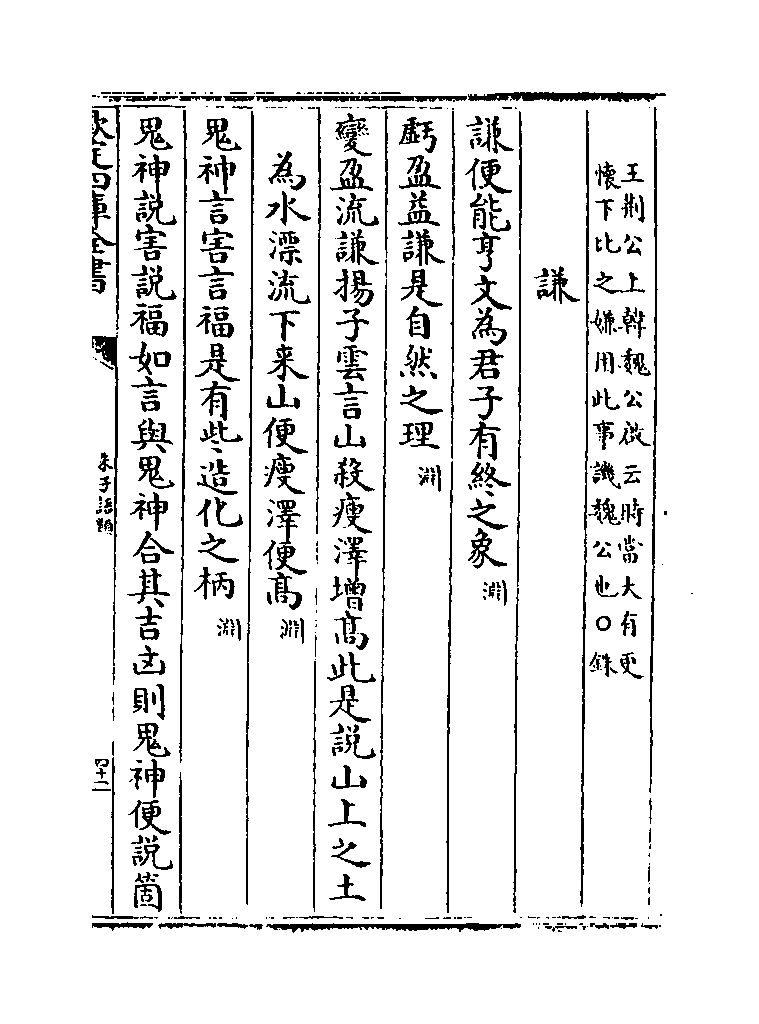 王荆公上韓魏公啟云時當大有更
懷下比之嫌用此事譏魏公也〇銖
謙
謙便能亨又為君子有終之象 淵
虧盈益謙是自然之理 淵
變盈流謙揚子雲言山殺瘦澤增髙此是説山上之土
為水漂流下来山便瘦澤便髙 淵
鬼神言害言福是有些造化之柄 淵
鬼神説害説福如言與鬼神合其吉凶則鬼神便説箇
欽定四庫全書
朱子語類
四十二